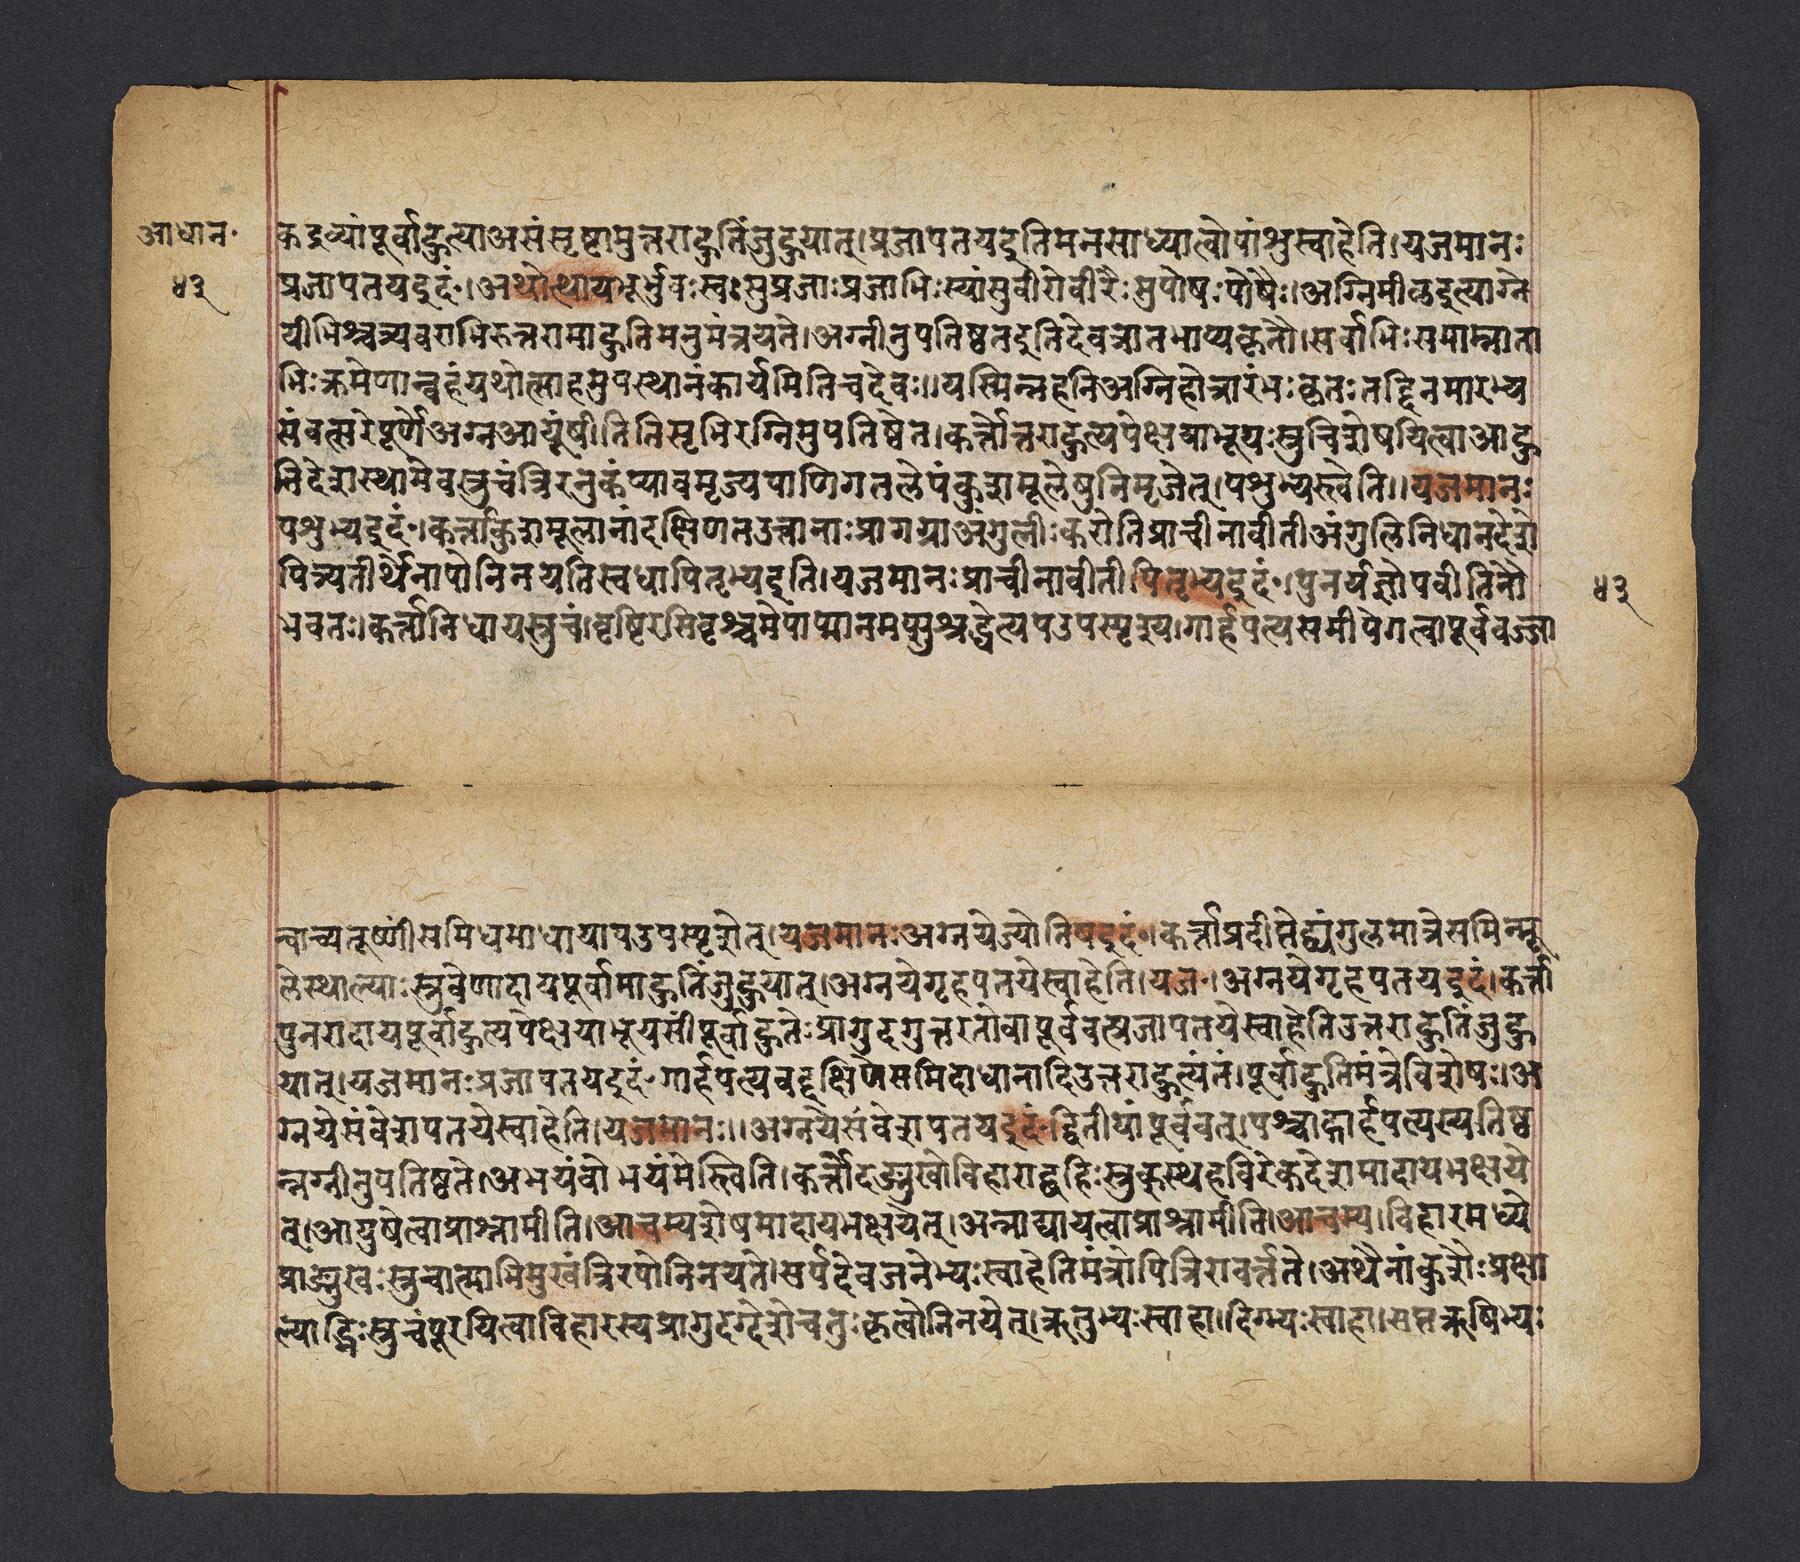 आधान॰
४३
कद्रव्यांपूर्वाहुत्याअसंसृष्टामुत्तराहुतिंजुहुयात्।प्रजापतयइतिमनसाध्यात्वोपांशुस्वाहेति।यजमानः
प्रजापतयइदं॰।अथोत्थायभूर्भुवःस्वःसुप्रजाःप्रजाभिःस्यांसुवीरोवीरैःसुपोषःपोषैः।अग्निमीळइत्याग्ने
यीभिश्चत्र्यवराभिरुत्तरामाहुतिमनुमंत्रयते।अग्नीनुपतिष्ठतइतिदेवत्रातभाष्यकृतौ।सर्वाभिःसमाम्नाता
भिःक्रमेणान्वहंयथोत्साहमुपस्थानंकार्यमितिचदेवः।।यस्मिन्नहनिअग्निहोत्रारंभःकृतःतद्दिनमारभ्य
संवत्सरेपूर्णेअग्नआयूंषीतितिसृभिरग्निमुपतिष्ठेत।कर्त्तोत्तराहुत्यपेक्षयाभूयःस्रुचिशेषयित्वाआहु
तिदेशस्थामेवस्रुचंत्रिरनुकंप्यावमृज्यपाणिगतलेपंकुशमूलेषुनिमृजेत्।पशुभ्यस्त्वेति।।यजमानः
पशुभ्यइदं॰।कर्त्ताकुशमूलानांदक्षिणतउत्तानाःप्रागग्राअंगुलीःकरोतिप्राचीनावीतीअंगुलिनिधानदेशे
पित्र्यतीर्थेनापोनिनयतिस्वधापितृभ्यइति।यजमानःप्राचीनावीती।पितृभ्यइदं॰।पुनर्यज्ञोपवीतिनौ
४३
भवतः।कर्त्तानिधायस्रुचं।वृष्टिरसिवृश्चमेपाप्मानमप्सुश्रद्धेत्यपउपस्पृश्य।गार्हपत्यसमीपेगत्वापूर्ववज्जा
न्वाच्यतूष्णींसमिधमाधायापउपस्पृशेत्।यजमानःअग्नयेज्योतिषइदं॰।कर्त्ताप्रदीप्तेद्व्यंगुलमात्रेसमिन्मू
लेस्थाल्याःस्रुवेणादायपूर्वामाहुतिंजुहुयात्।अग्नयेगृहपतयेस्वाहेति।यज॰।अग्नयेगृहपतयइदं।कर्त्ता
पुनरादायपूर्वाहुत्यपेक्षयाभूयसींपूर्वाहुतेःप्रागुदगुत्तरतोवापूर्ववत्प्रजापतयेस्वाहेतिउत्तराहुतिंजुहु
यात्।यजमानःप्रजापतयइदं॰गार्हपत्यवद्दक्षिणेसमिदाधानादिउत्तराहुत्यंतं।पूर्वाहुतिमंत्रेविशेषः।अ
ग्नयेसंवेशपतयेस्वाहेति।यजमानः।।अग्नयेसंवेशपतयइदं॰द्वितीयांपूर्ववत्।पश्चाद्गार्हपत्यस्यतिष्ठ
न्नग्नीनुपतिष्ठते।अभयंवोभयंमेस्त्विति।कर्त्तोदङ्मुखोविहाराद्बहिःस्रुक्स्थहविरेकदेशमादायभक्षये
त्।आयुषेत्वाप्राश्नामीति।आचम्यशेषमादायभक्षयेत्।अन्नाद्यायत्वाप्राश्नामीति।आचम्य।विहारमध्ये
प्राङ्मुखःस्रुचात्माभिमुखंत्रिरपोनिनयते।सर्पदेवजनेभ्यःस्वाहेतिमंत्रोपित्रिरावर्त्तते।अथैनांकुशैःप्रक्षा
ल्याद्भिःस्रुचंपूरयित्वाविहारस्यप्रागुदग्देशेचतुःकृत्वोनिनयेत्।ऋतुभ्यःस्वाहा।दिग्भ्यःस्वाहा।सप्तऋषिभ्यः